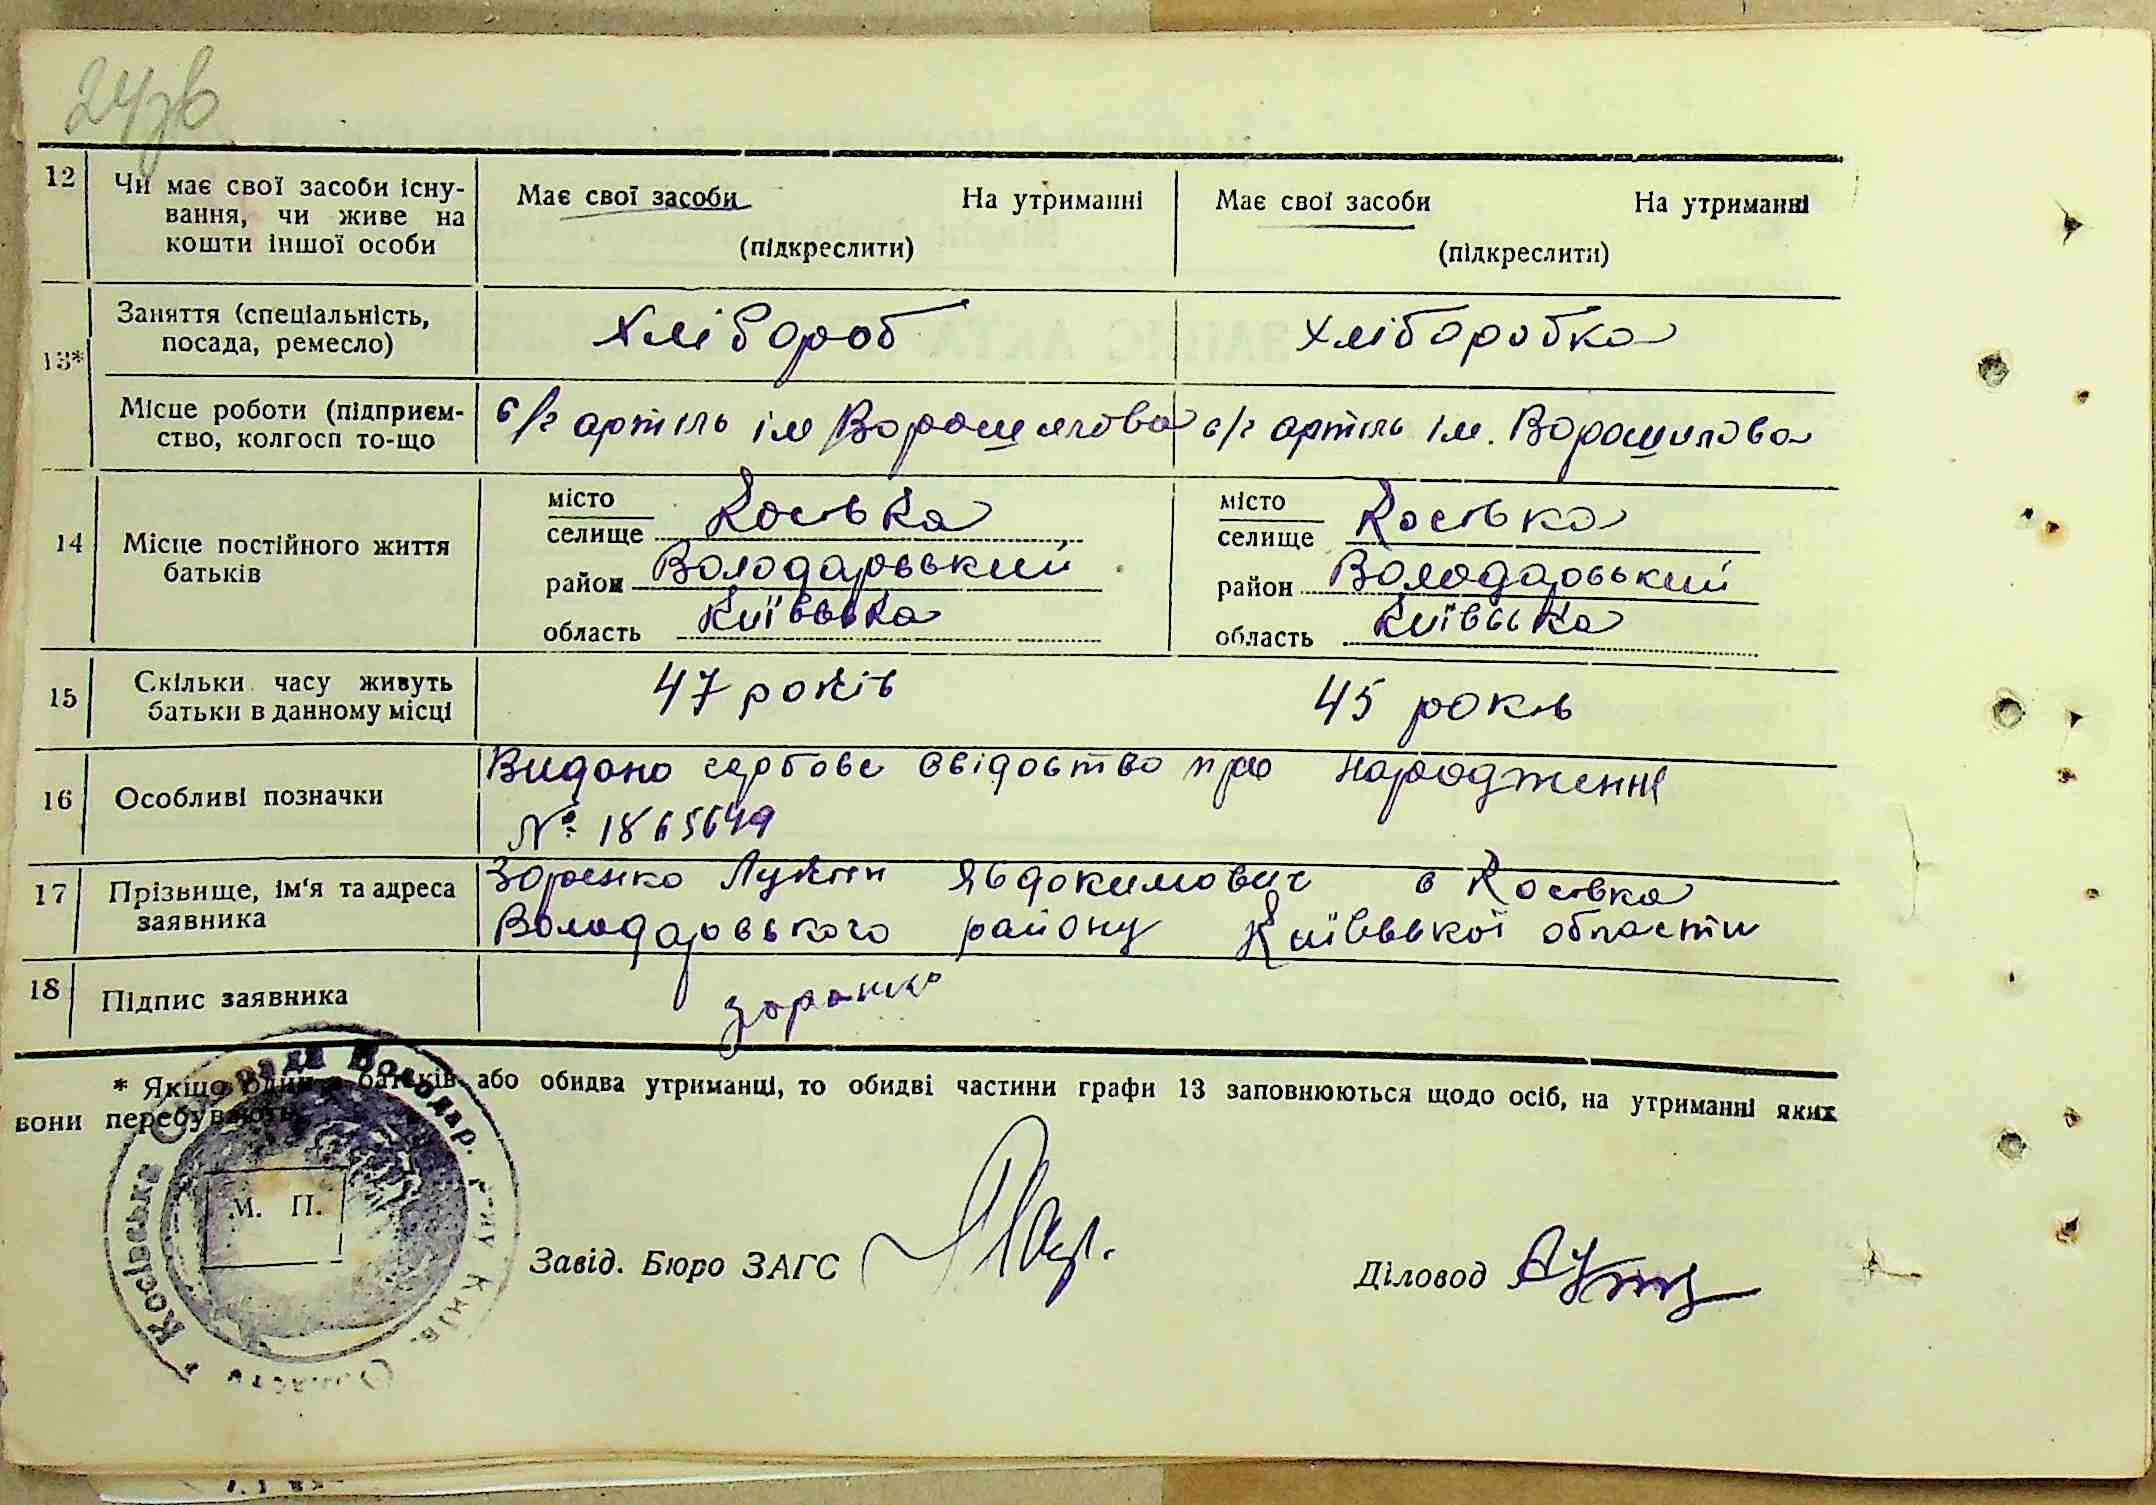 24зв
12 Чи має свої засоби існу-
вання, чи живе на
кошти іншої особи
Має свої засоби На утриманні
(підкреслити)
Має свої засоби На утриманні
(підкреслити)
13* Заняття (спеціальність,
посада, ремесло)
Хлібороб
Хліборобка
Місце роботи (підприєм-
ство, колгосп то-що
с/г артіль ім Ворошилова
с/г артіль ім. Ворошилова
14 Місце постійного життя
батьків
місто
селище Косівка
район Володарський
область Київська
місто
селище Косівка
район Володарський
область Київська
15 Скільки часу живуть
батьки в данному місці
47 років
45 років
16 Особливі позначки
Видано гербове свідоство про народження
№ 1865649
17 Прізвище, ім'я та адреса
заявника
Зоренко Лукян Явдокимович с Косівка
Володарського району Київської області
18 Підпис заявника
Зоренко
* Якщо один з батьків або обидва утриманці, то обидві частини графи 13 заповнюються щодо осіб, на утриманні яких
вони перебувають.
Косівська Сільрада Володар. р-ну Київ. Области
М. П.
Завід. Бюро ЗАГС
Діловод